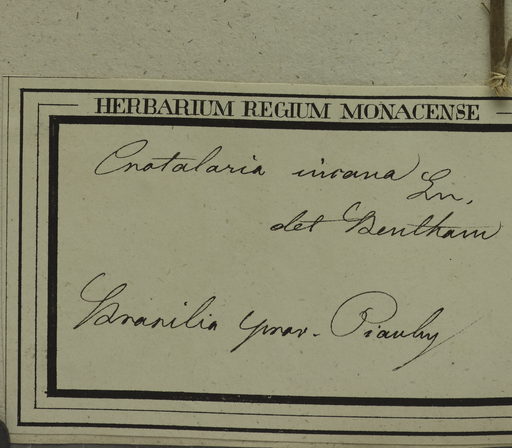 HERBARIUM REGIUM MONACENSE
Crotalaria incana Lin.
det Bentham
Brasilia prov. Piauhy